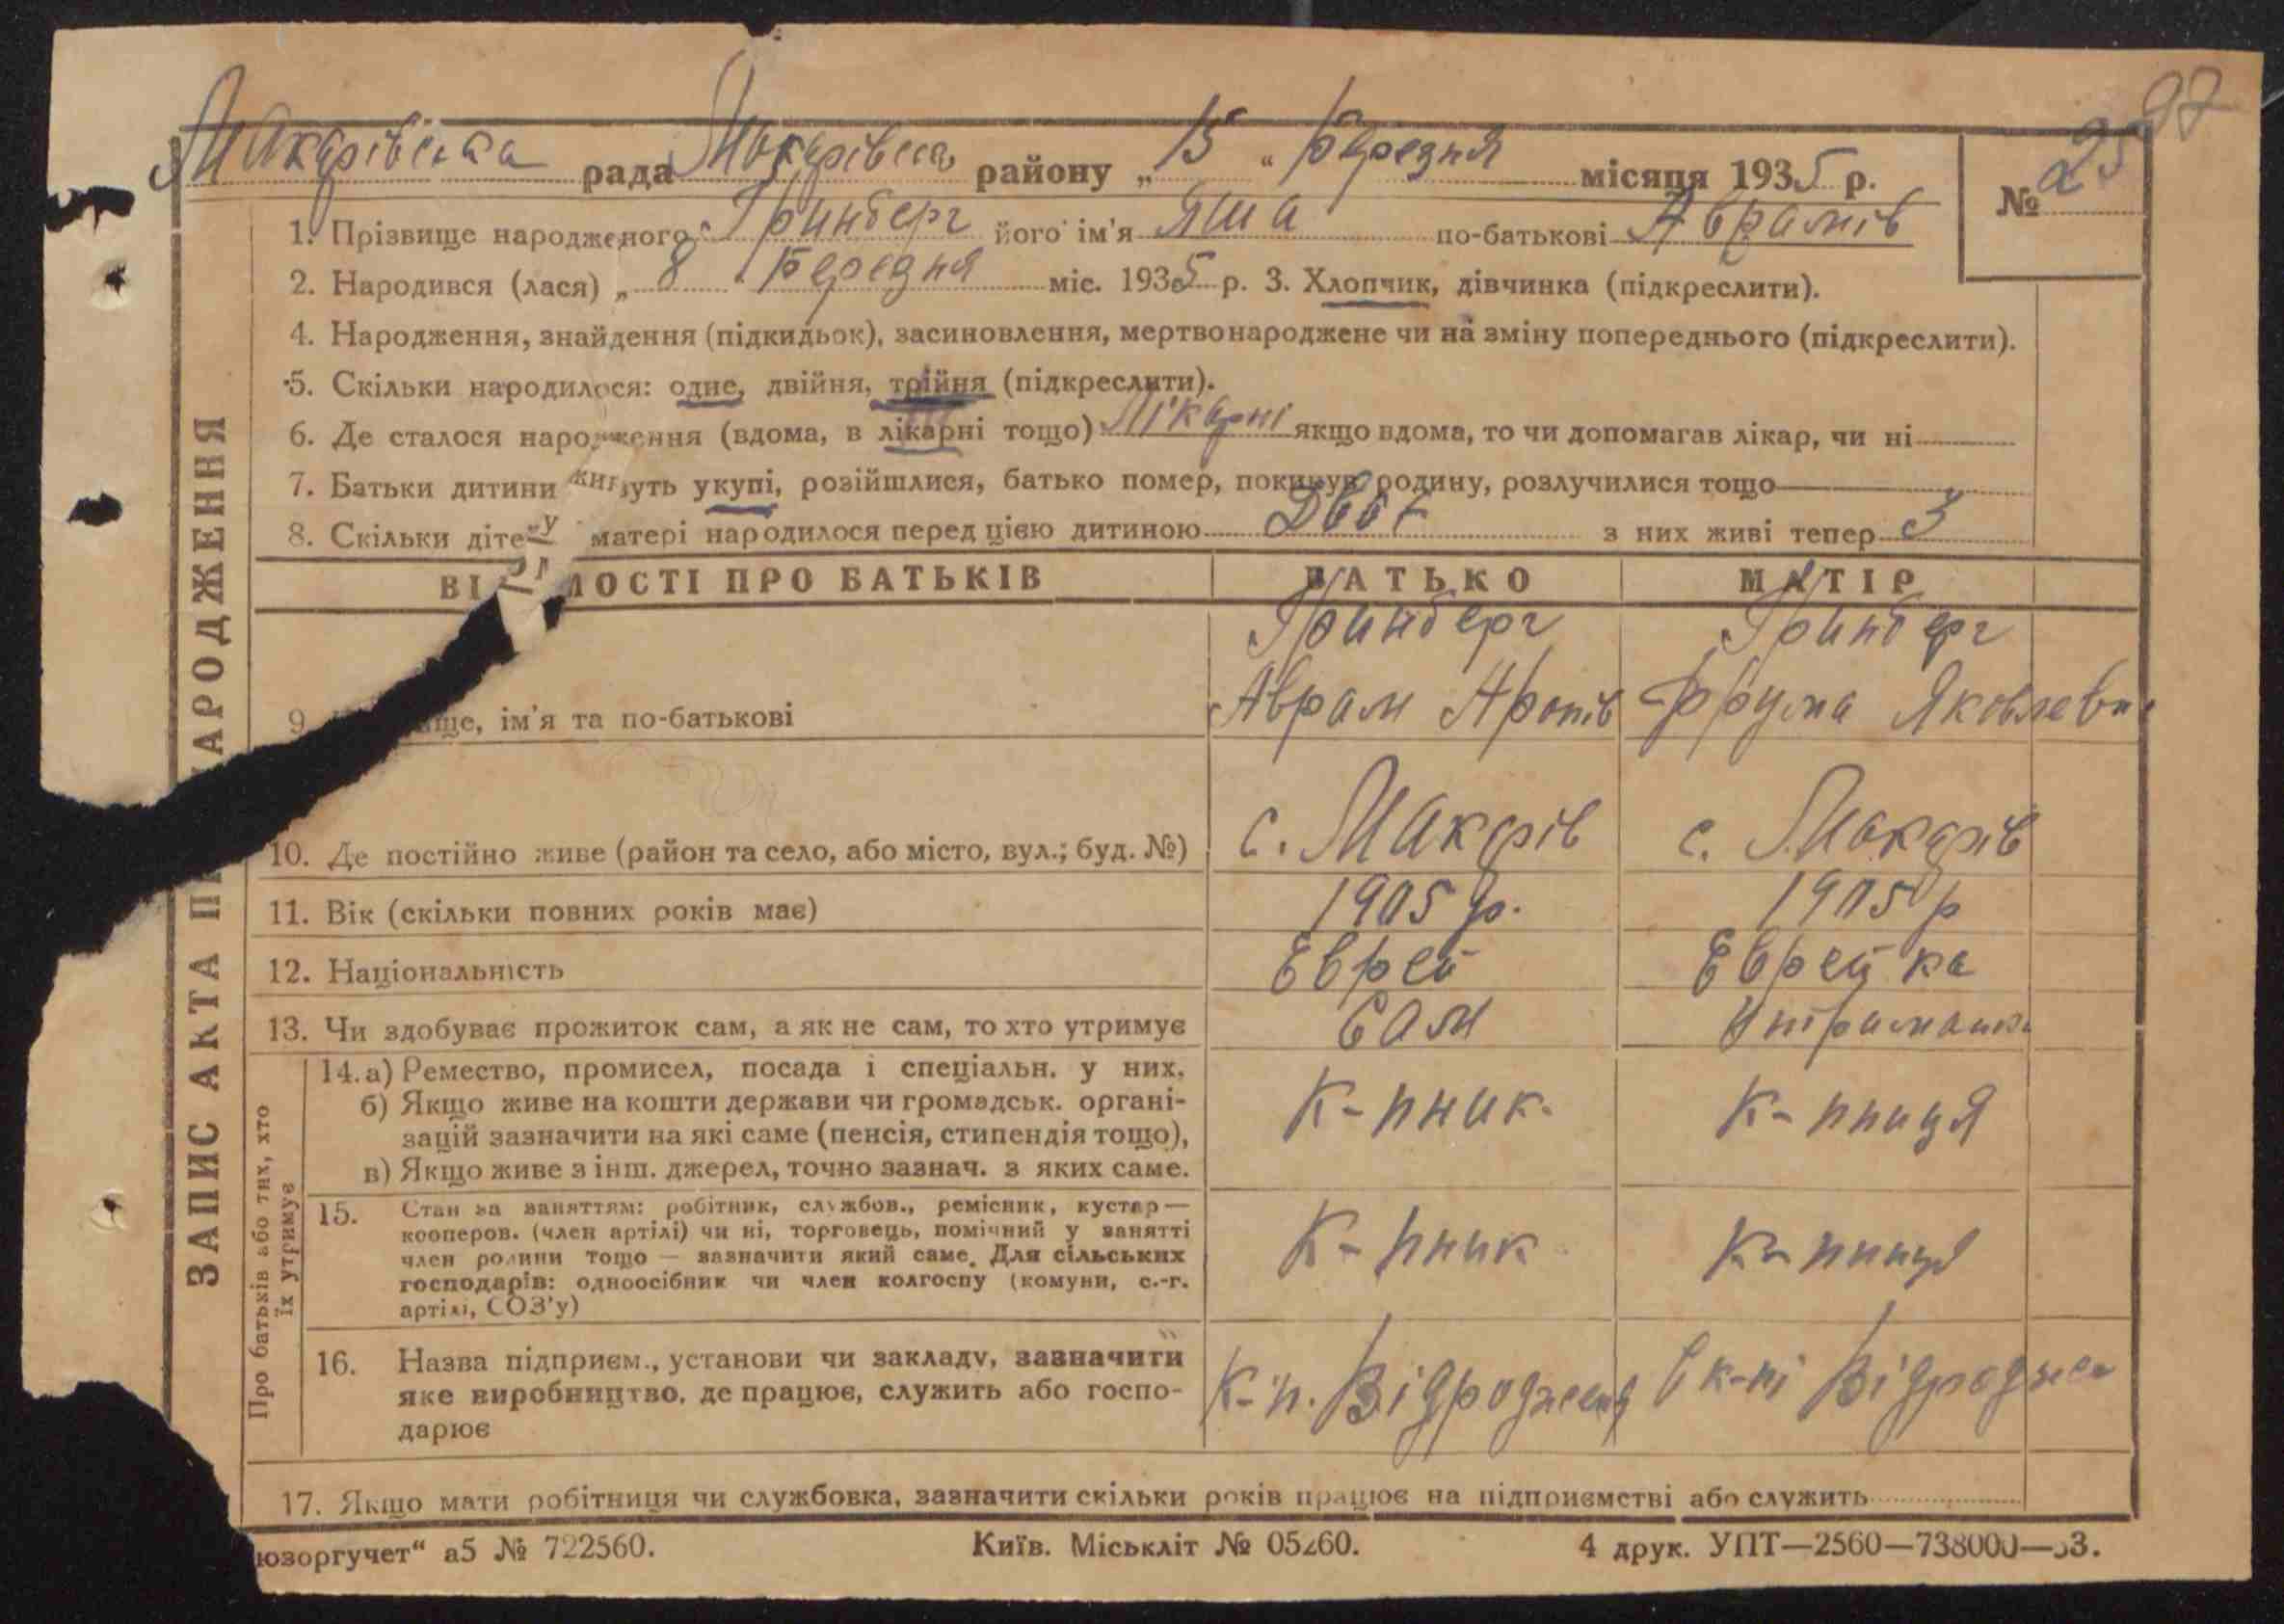 97
Макарівська рада Макарівськ району „ 15 “ березня місяця 1935 р.
№ 25
1. Прізвище народженого Гринберг його ім'я Яша по-батькові Аврамів
2. Народився (лася) „ 8 “ березня міс. 1935 р. 3. Хлопчик, дівчинка (підкреслити).
4. Народження, знайдення (підкидьок), засиновлення, мертвонароджене чи на зміну попереднього (підкреслити).
5. Скільки народилося: одне, двійня, трійня (підкреслити).
6. Де сталося народження (вдома, в лікарні тощо) Лікарні якщо вдома, то чи допомагав лікар, чи ні
7. Батьки дитини живуть укупі, розійшлися, батько помер, покинув родину, розлучилися тощо
8. Скільки діте у матері народилося перед цією дитиною Двоє з них живі тепер 3
ВІ МОСТІ ПРО БАТЬКІВ БАТЬКО МАТІР
Гринберг Гринберг
9. ище, ім'я та по-батькові Аврам Аронів Фрума Яковлевн
10. Де постійно живе (район та село, або місто, вул.; буд. №) с. Макарів с. Макарів
11. Вік (скільки повних років має) 1905 р. 1905 р
12. Національність Еврей Еврейка
13. Чи здобуває прожиток сам, а як не сам, то хто утримує Сам
14. а) Ремество, промисел, посада і спеціальн. у них.
б) Якщо живе на кошти держави чи громадськ. органі-
зацій зазначити на які саме (пенсія, стипендія тощо),
в) Якщо живе з інш. джерел, точно зазнач. з яких саме.
К-пник. К-пниця
15. Стан за заняттям: робітник, службов., ремісник, кустар —
кооперов. (член артілі) чи ні, торговець, помічний у занятті
член родини тощо — зазначити який саме. Для сільських
господарів: одноосібник чи член колгоспу (комуни, с.-г.
артілі, СОЗ'у)
К-пник К-пниця
16. Назва підприєм., установи чи закладу, зазначити
яке виробництво, де працює, служить або госпо-
дарює
К-п. Відродження к-пі Відроджен
17. Якщо мати робітниця чи службовка, зазначити скільки років працює на підприємстві або служить
юзоргучет“ а5 № 722560. Київ. Міськліт № 05260. 4 друк. УПТ—2560—738000—33.
ЗАПИС АКТА П АРОДЖЕННЯ
Про батьків або тих, хто
їх утримує